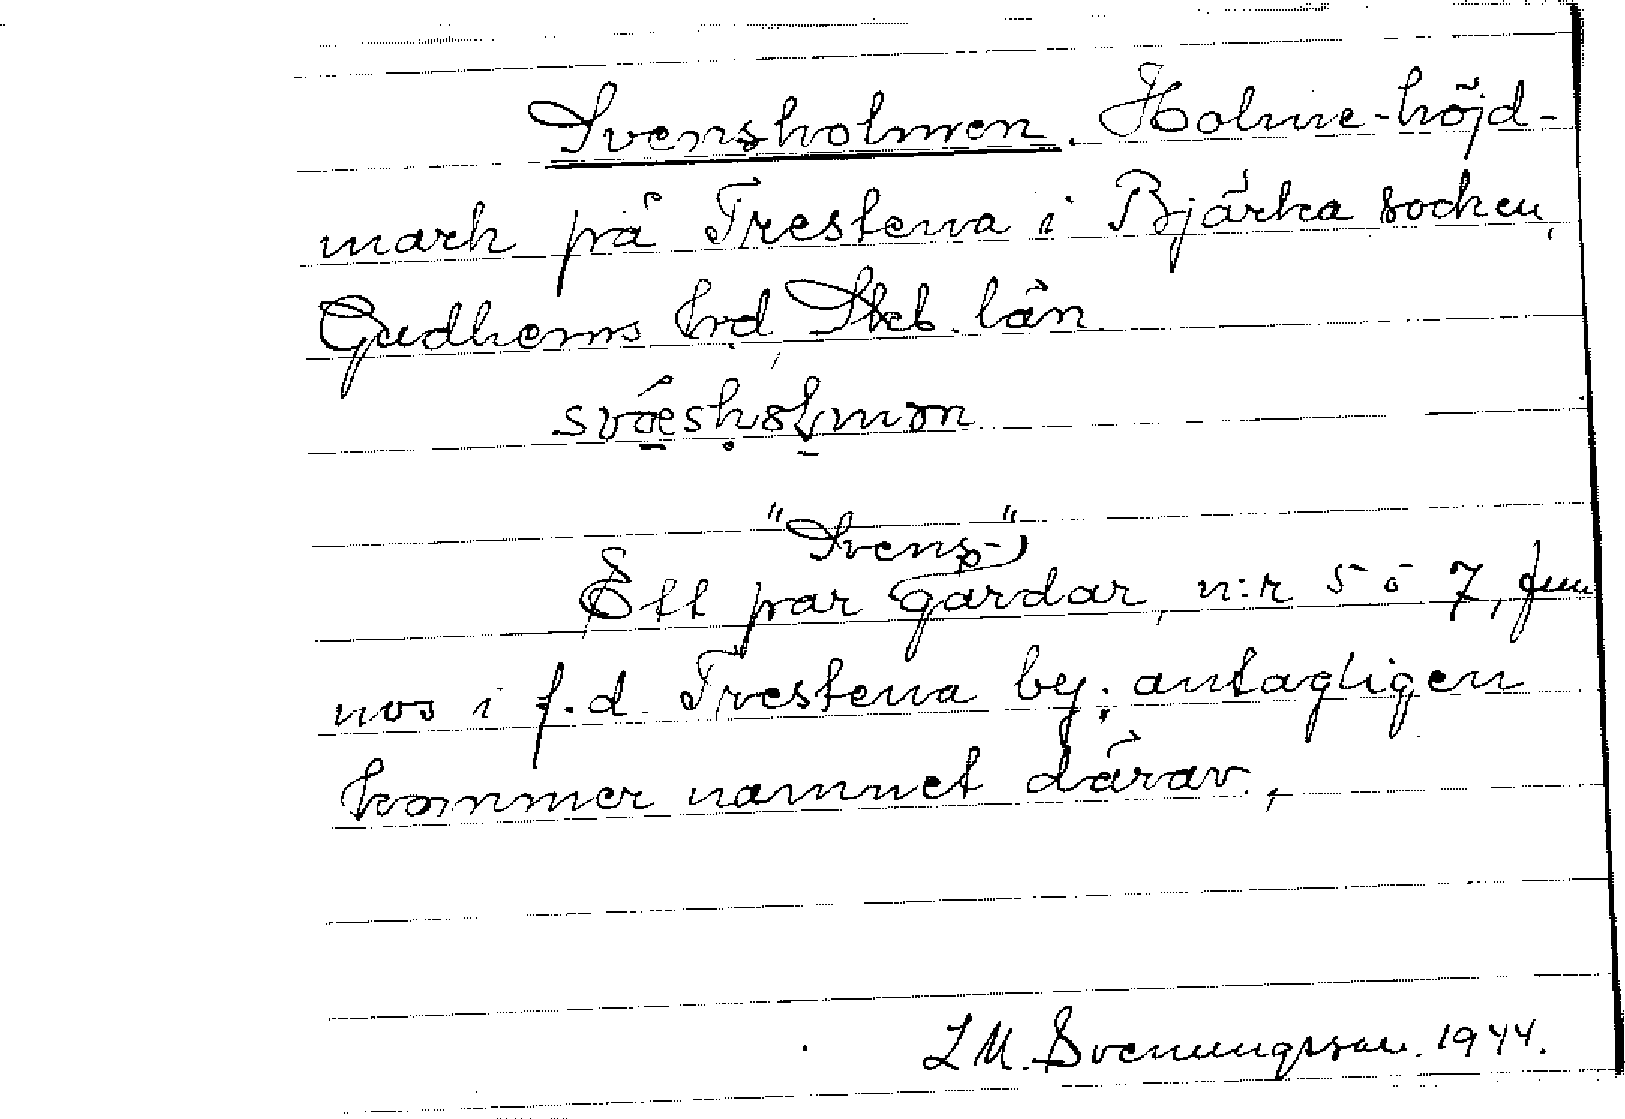 Svensholmen. Holme-höjd-
mark på Trestena i Bjärka socken,
Gudhems hrd, Skb. län.
"Svens-"
Ett par gårdar, n:r 5 o 7, fin
nos i f.d. Trestena by; antagligen
kommer namnet därav.
L M. Svenungsson. 1944.